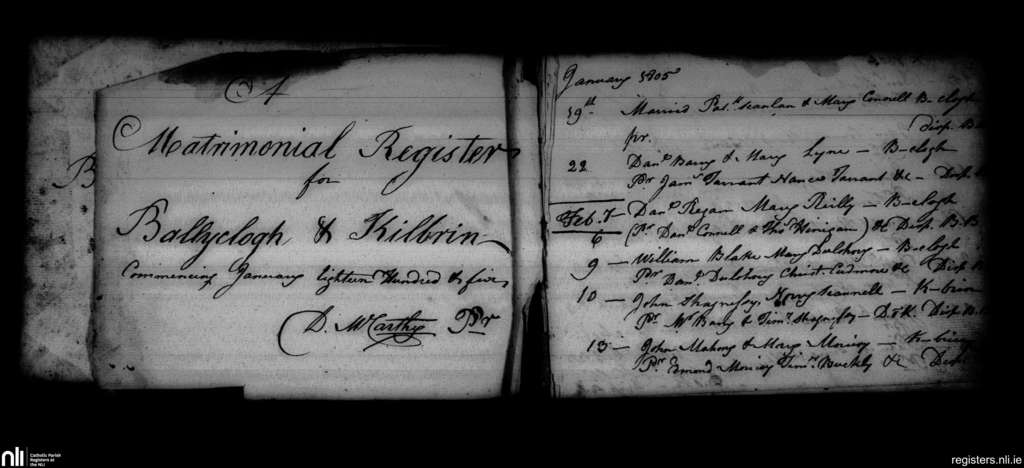 A
Matrimonial Register
for
Ballyclogh & Kilbrin
Commencing January Eighteen Hundred & five
D. McCarthy Pr
B
January 1805
19th Married Pat.k Scanlan & Mary Connell B-clogh
pr. Disp. B
22 Dan.l Barry & Mary Lyne - B-clogh
Pr Jam.s Tarrant Tarrant &c - Disp.
Feb. 7 - Dan.l Regan Mary Reilly - B-clogh
6 (Pr Dan.l Connell & Tho.s Finigan) &c Disp. B.B
9 - William Blake Mary Dulhony - B-clogh
Pr Dan.l Dulhony &c Disp B
10 - John Shagnessy Scannell - K-brin
Pr Mr Barry & Tim.y Shagnessy - D.r K. Disp. B.
13 - John Mahony & Mary - K-brin
Pr Edmond Tim.y Buckly &c Disp
nli
Catholic Parish
Registers at
the NLI
registers.nli.ie